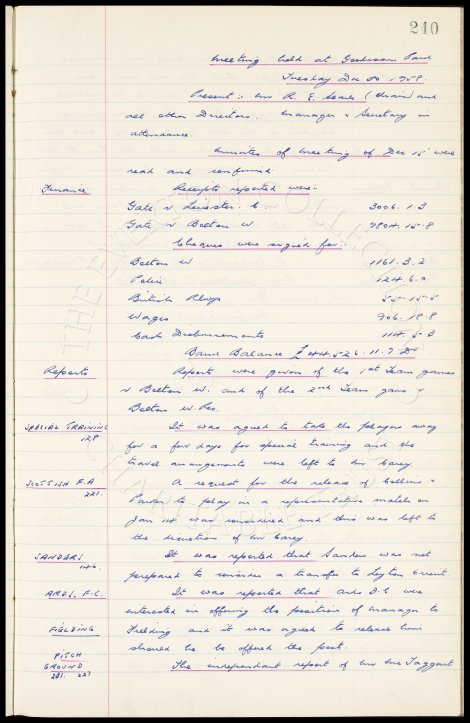 240
Meeting held at Goodison Park
Tuesday Dec 30 1958.
Present: Mr R. E. Searle (Chair) and
all other Directors. Manager & Secretary in
attendance.
Minutes of Meeting of Dec 15 were
read and confirmed
Finance Receipts reported were:-
Gate v Leicester. C 3006.1.3
Gate v Bolton W 9804.15.8
Cheques were signed for:-
Bolton W 1161.3.2
Police 124.6.0
British Rlwys 55.15.5
Wages 906.18.8
Cash Disbursements 114.5.3
Bank Balance £44,526.11.7 Dr
Reports Reports were given of the 1st Team games
v Bolton W. and of the 2nd Team game v
Bolton W. Res.
SPECIAL TRAINING It was agreed to take the players away
128 for a few days for special training and the
travel arrangements were left to Mr Carey
SCOTTISH F.A A request for the release of Collins &
221. Parker to play in a representative match on
Jan 14 was considered and this was left to
the discretion of Mr Carey.
SANDERS It was reported that Sanders was not
146. prepared to consider a transfer to Leyton Orient.
ARDS. F.C. It was reported that Ards F.C were
interested in offering the position of manager to
FIELDING Fielding and it was agreed to release him
should he be offered the post.
PITCH
GROUND The independant report of Mr McTaggart
231. 227
THE EVERTON COLLECTION
CHARITABLE TRUST